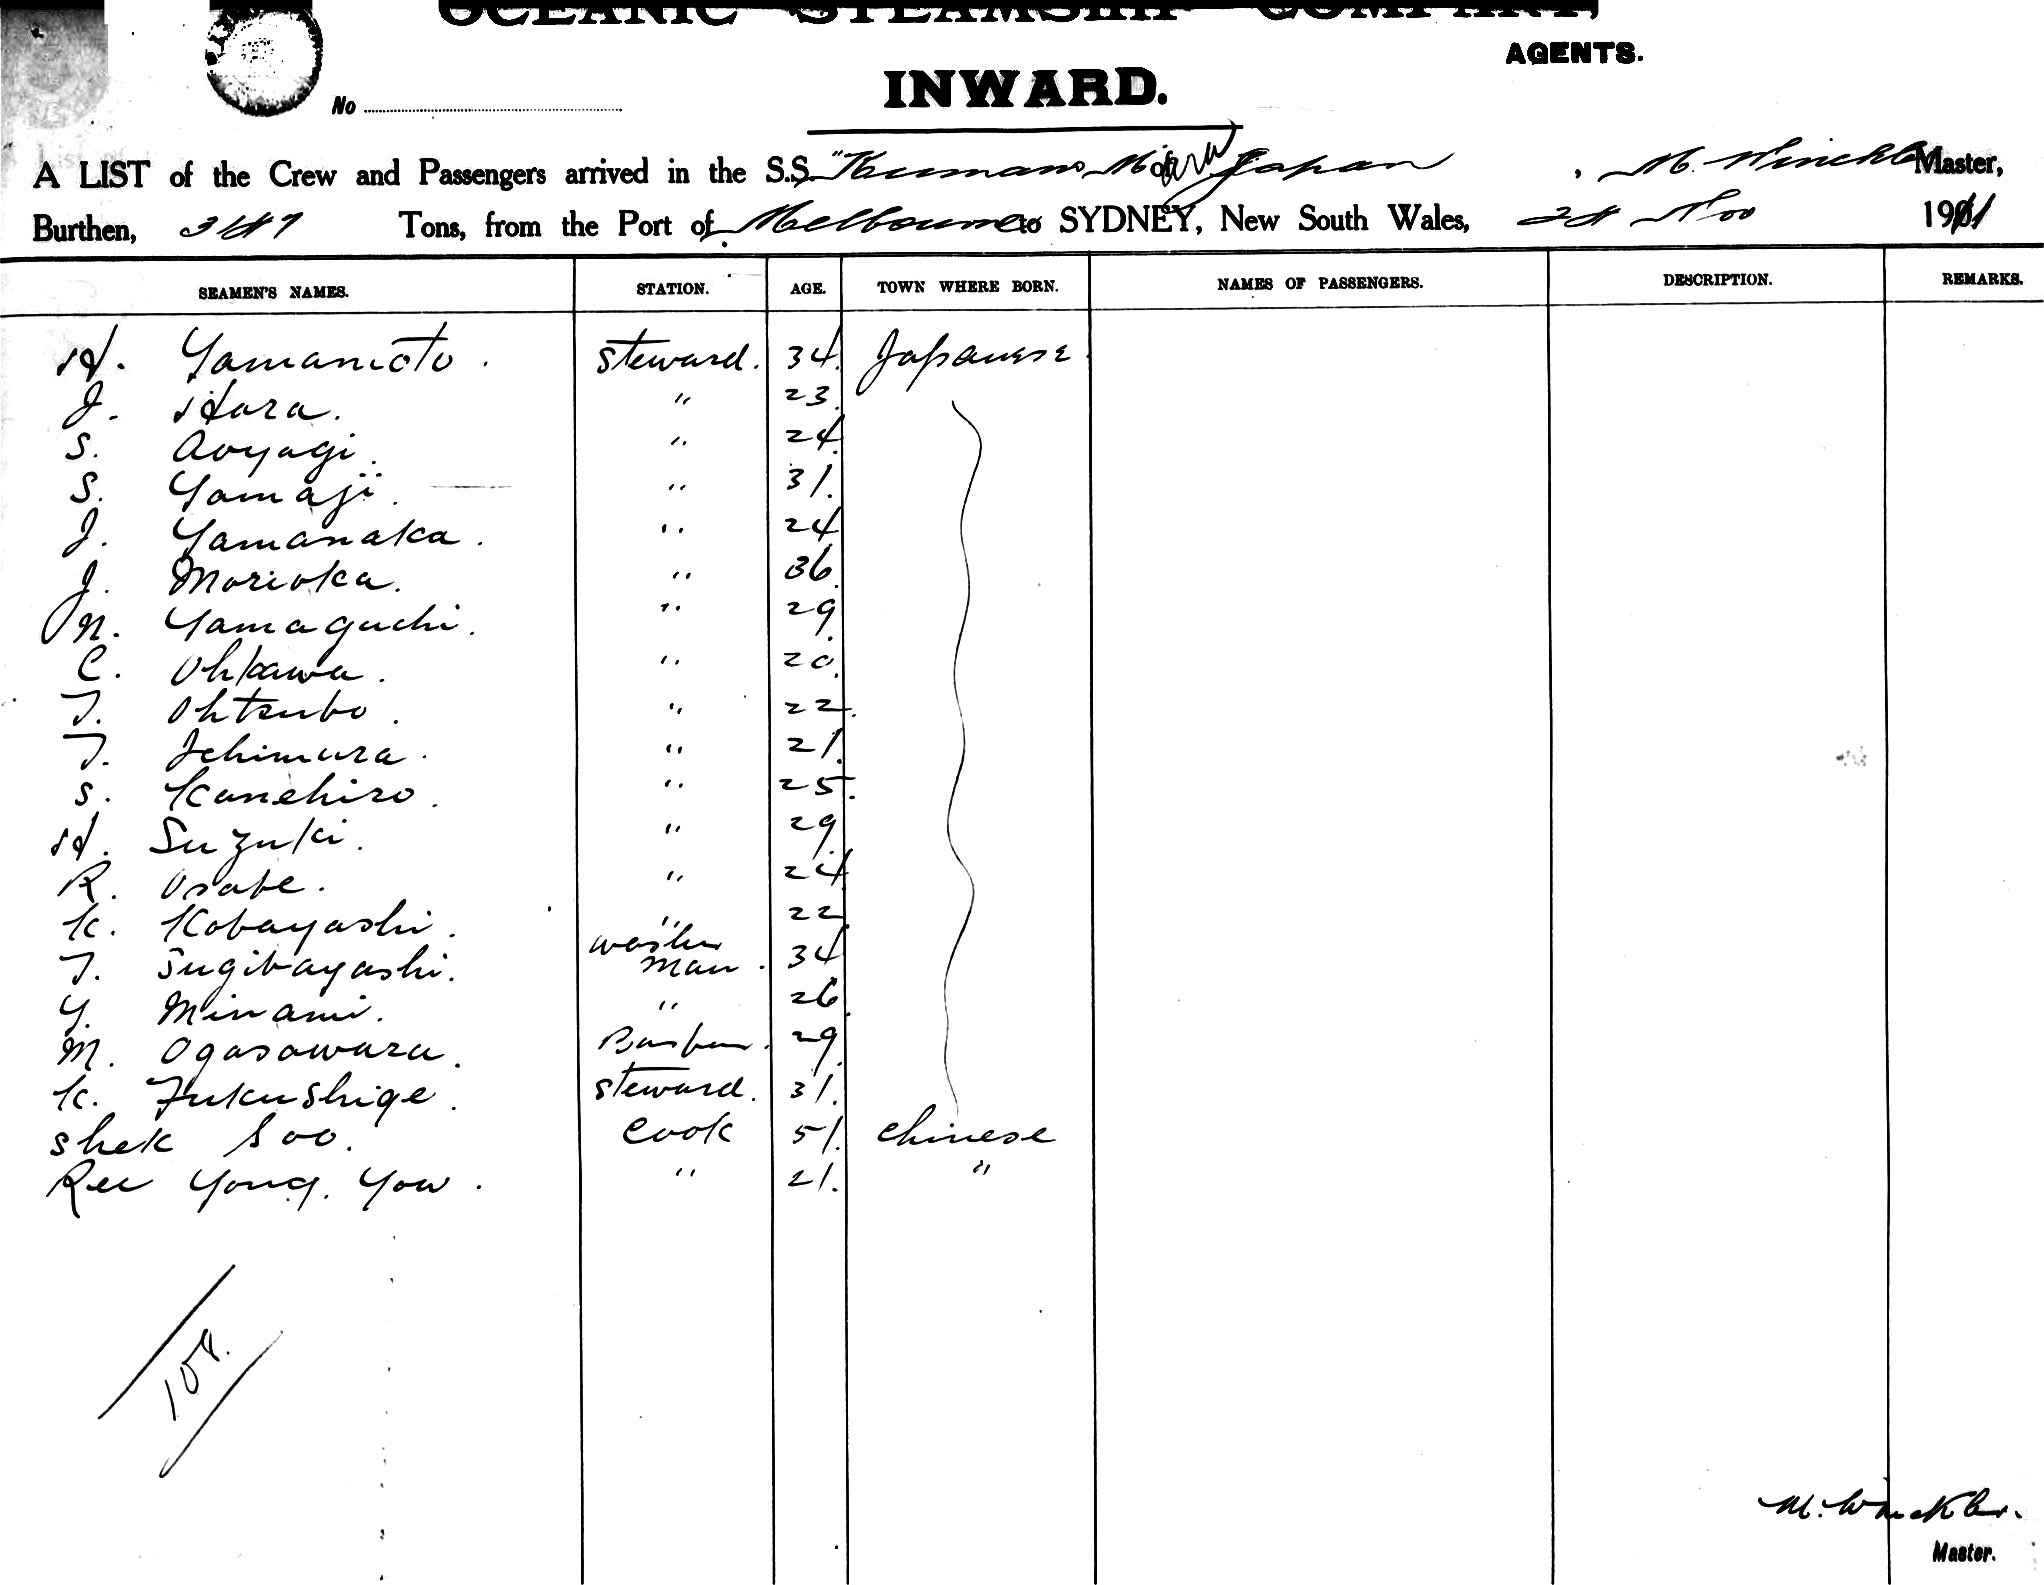 OCEANIC STEAMSHIP COMPANY,
AGENTS.
No
INWARD.
A LIST of the Crew and Passengers arrived in the S.S. "Kumano Maru Japan , M. Winckler Master,
Burthen, Tons, from the Port of Melbourne to SYDNEY, New South Wales, 24 Nov 1911
SEAMEN'S NAMES. STATION. AGE. TOWN WHERE BORN. NAMES OF PASSENGERS. DESCRIPTION. REMARKS.
H. Yamamoto. steward. 34. Japanese
J. Hara. " 23.
S. Aoyagi. " 24.
S. Yamaji. " 31.
J. Yamanaka. " 24
J. Morioka. " 36.
N. Yamaguchi. " 29.
C. Ohkawa. " 20.
T. Ohtsubo. " 22.
T. Ichimura. " 21.
S. Kanehiro. " 25.
H. Suzuki. " 29.
R. Osabe. " 24
K. Kobayashi. " 22
T. Sugibayashi. washer man. 34
Y. Minami. " 26.
M. Ogasawara. 29.
K. Fukushige. steward. 31.
Shek Soo. Cook 51. Chinese
Ree Yong. You. " 21. "
108.
M. Winckler.
Master.